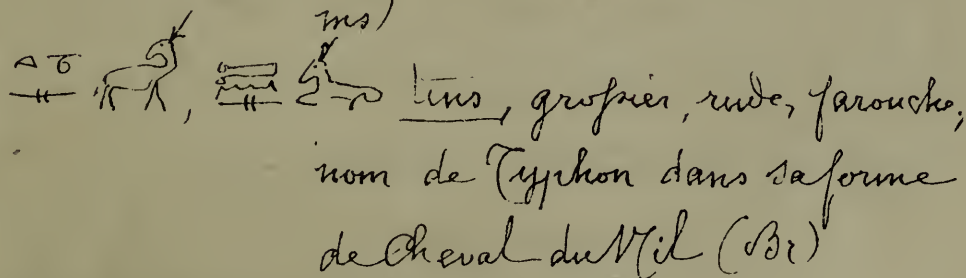 ms)
, grossier, rude, farouche,
nom de Typhon dans sa forme
de Cheval du Nil (Br)